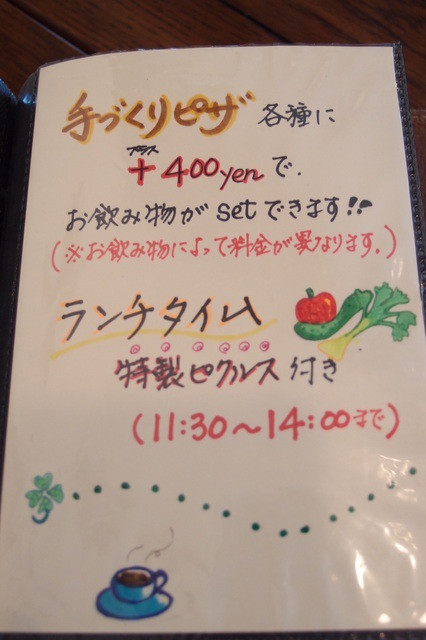 手づくりピザ 各種に
プラス
+400yenで.
お飲み物がsetできます!!
(※お飲み物によって料金が異なります.)
ランチタイム
特製ピクルス付き
(11:30~14:00まで)